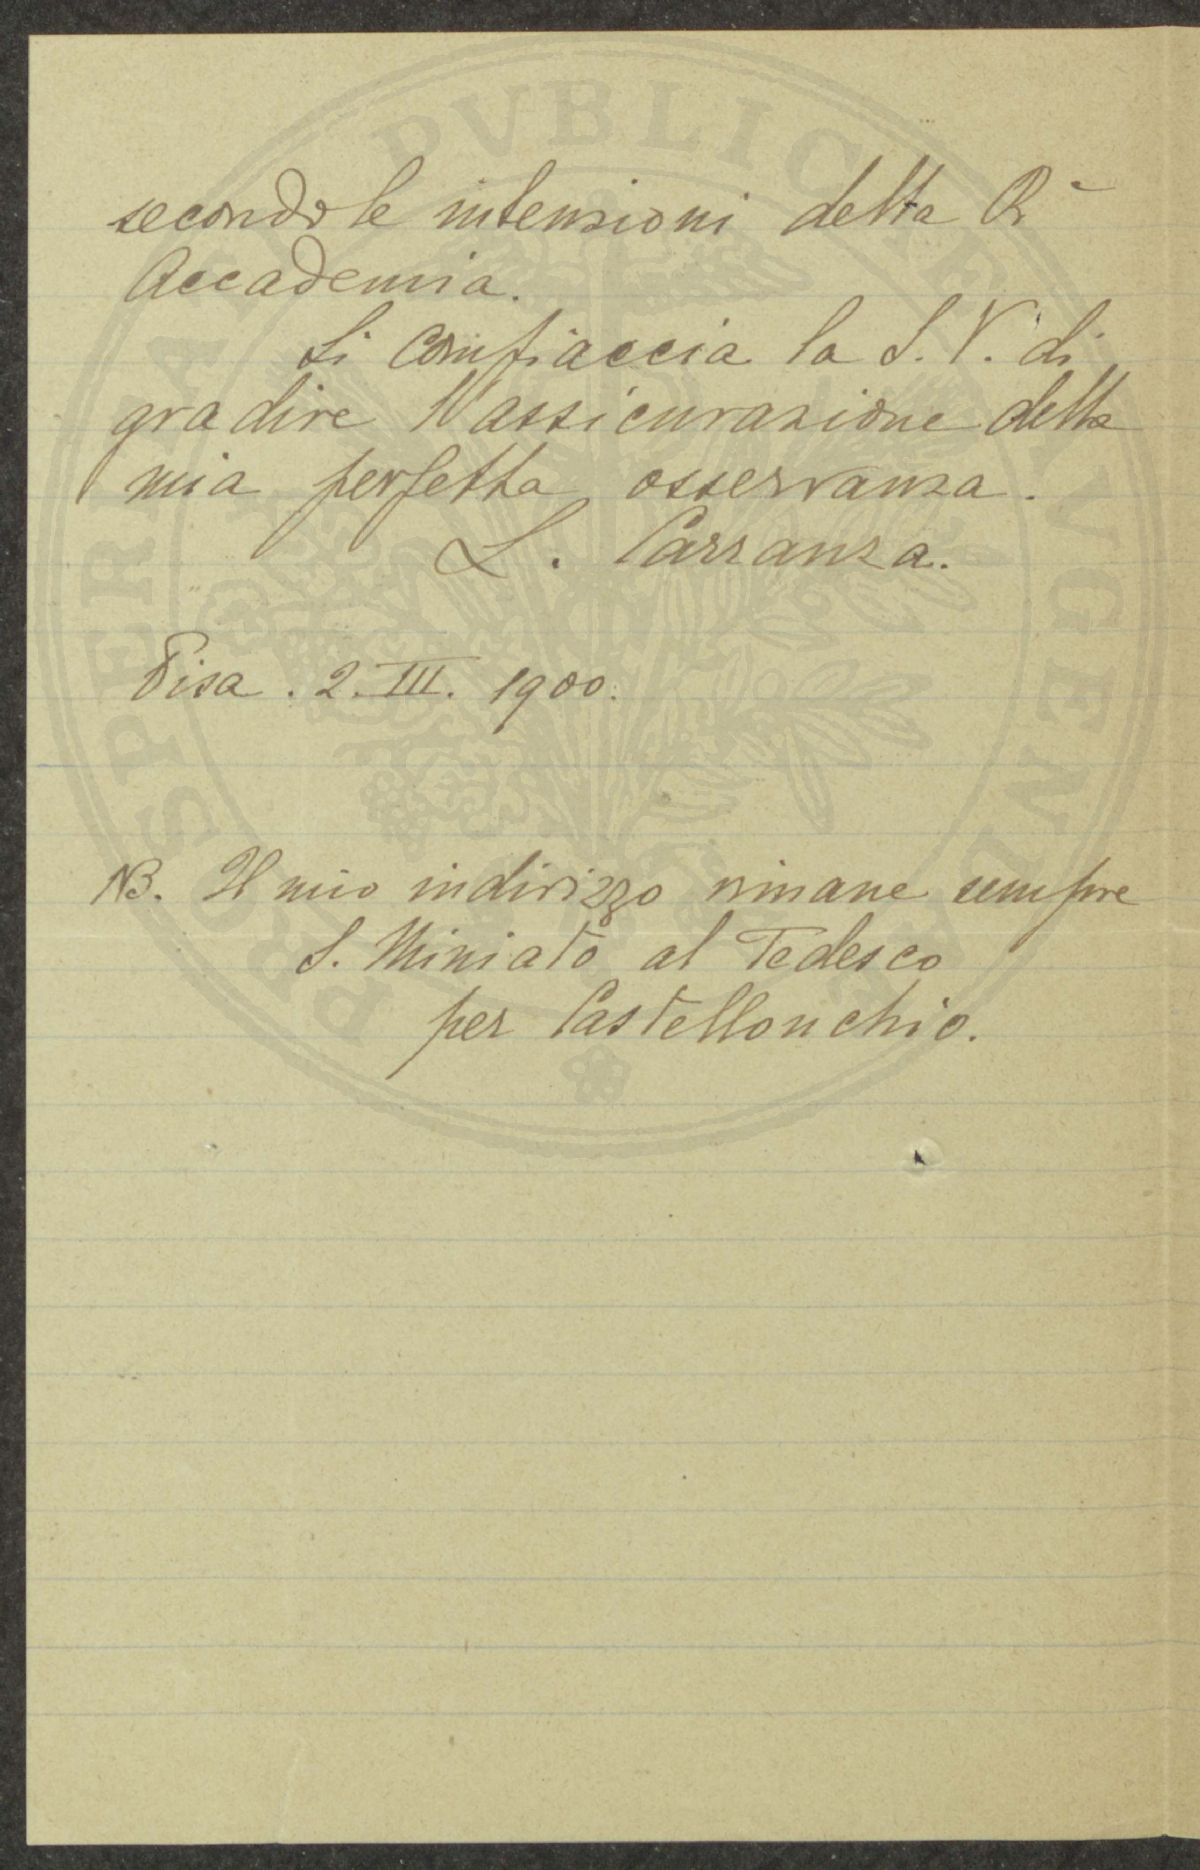 secondo le intenzioni della R.
Accademia.
Si compiaccia la S. V. di
gradire l'assicurazione della
mia perfetta osservanza.
L. Carranza.
Pisa. 2. III. 1900.
NB. Il mio indirizzo rimane sempre
S. Miniato al Tedesco
per Castellonchio.
PROSPERITATI PUBLICAE AUGENDAE